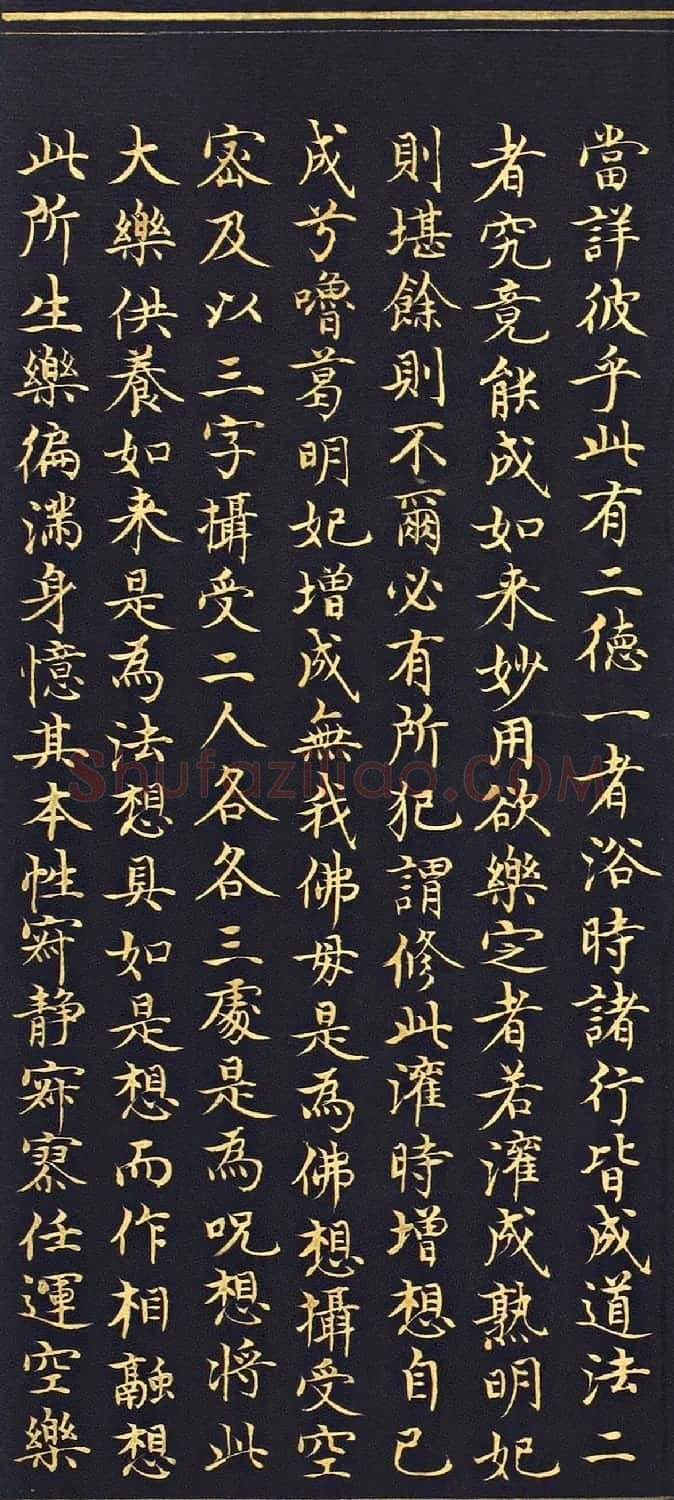 當詳彼乎此有二德一者浴時諸行皆成道法二
者究竟能成如来妙用欲樂定者若灌成熟明妃
則堪餘則不爾必有所犯謂修此灌時增想自己
成兮嚕葛明妃增成無我佛母是為佛想攝受空
密及以三字攝受二人各各三處是為呪想將此
大樂供養如来是為法想具如是想而作相融想
此所生樂徧滿身憶其本性寂静寂寂任運空樂
Shufaziliao.COM